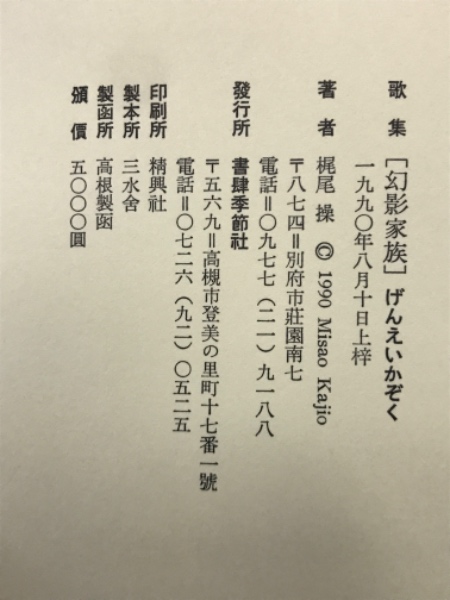 歌集 [幻影家族] げんえいかぞく
一九九〇年八月十日上梓
著者 梶尾 操 © 1990 Misao Kajio
〒八七四=別府市莊園南七
電話=〇九七七(二一)九一八八
發行所 書肆季節社
〒五六九=高槻市登美の里町十七番一號
電話=〇七二六(九二)〇五二五
印刷所 精興社
製本所 三水舍
製函所 高根製函
頒價 五〇〇〇圓